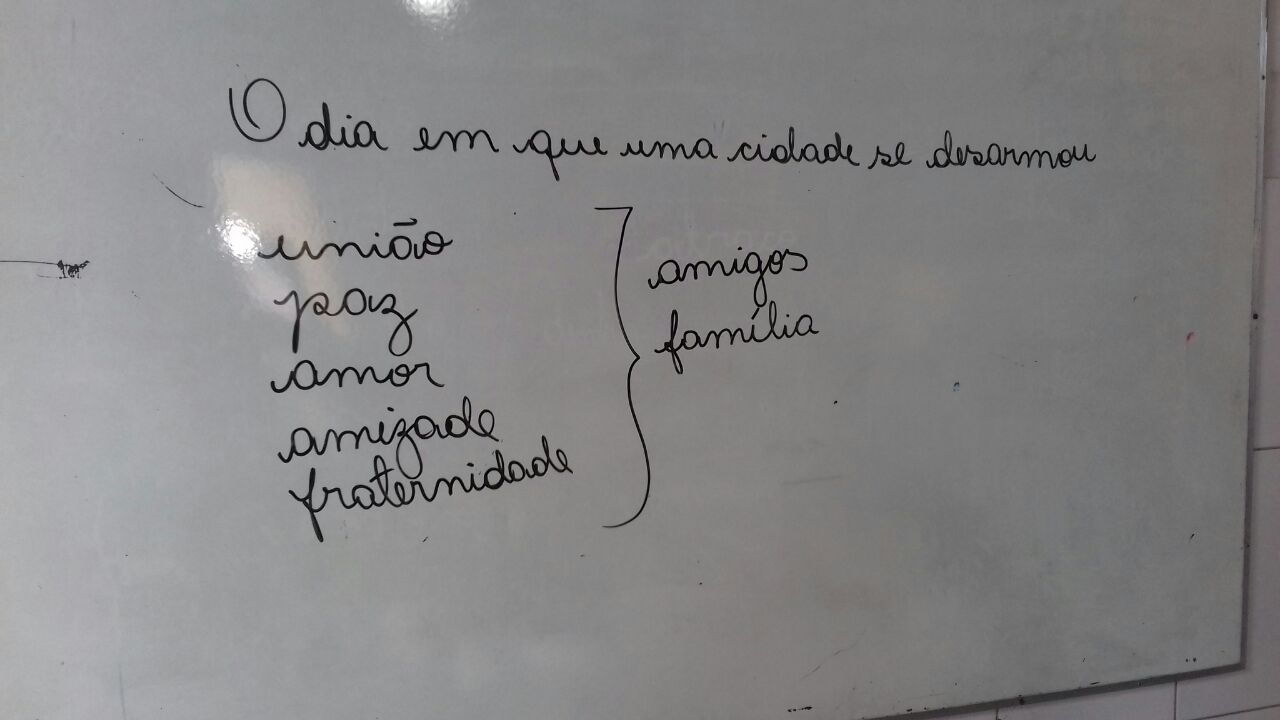 O dia em que uma cidade se desarmou
união
paz
amor
amizade
fraternidade
amigos
família